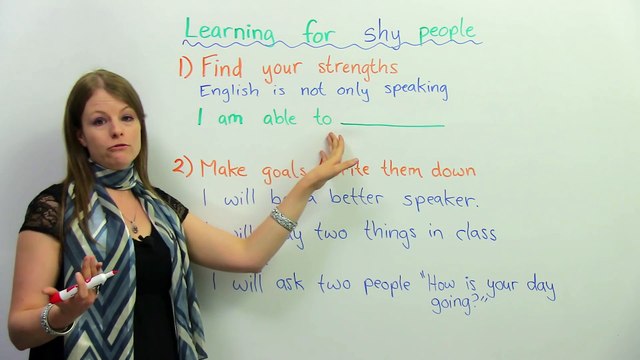 Learning for shy people
1) Find your strengths
English is not only speaking
I am able to __________
2) Make goals them down
I will be a better speaker.
I will two things in class
I will ask two people "How is your day
going?"